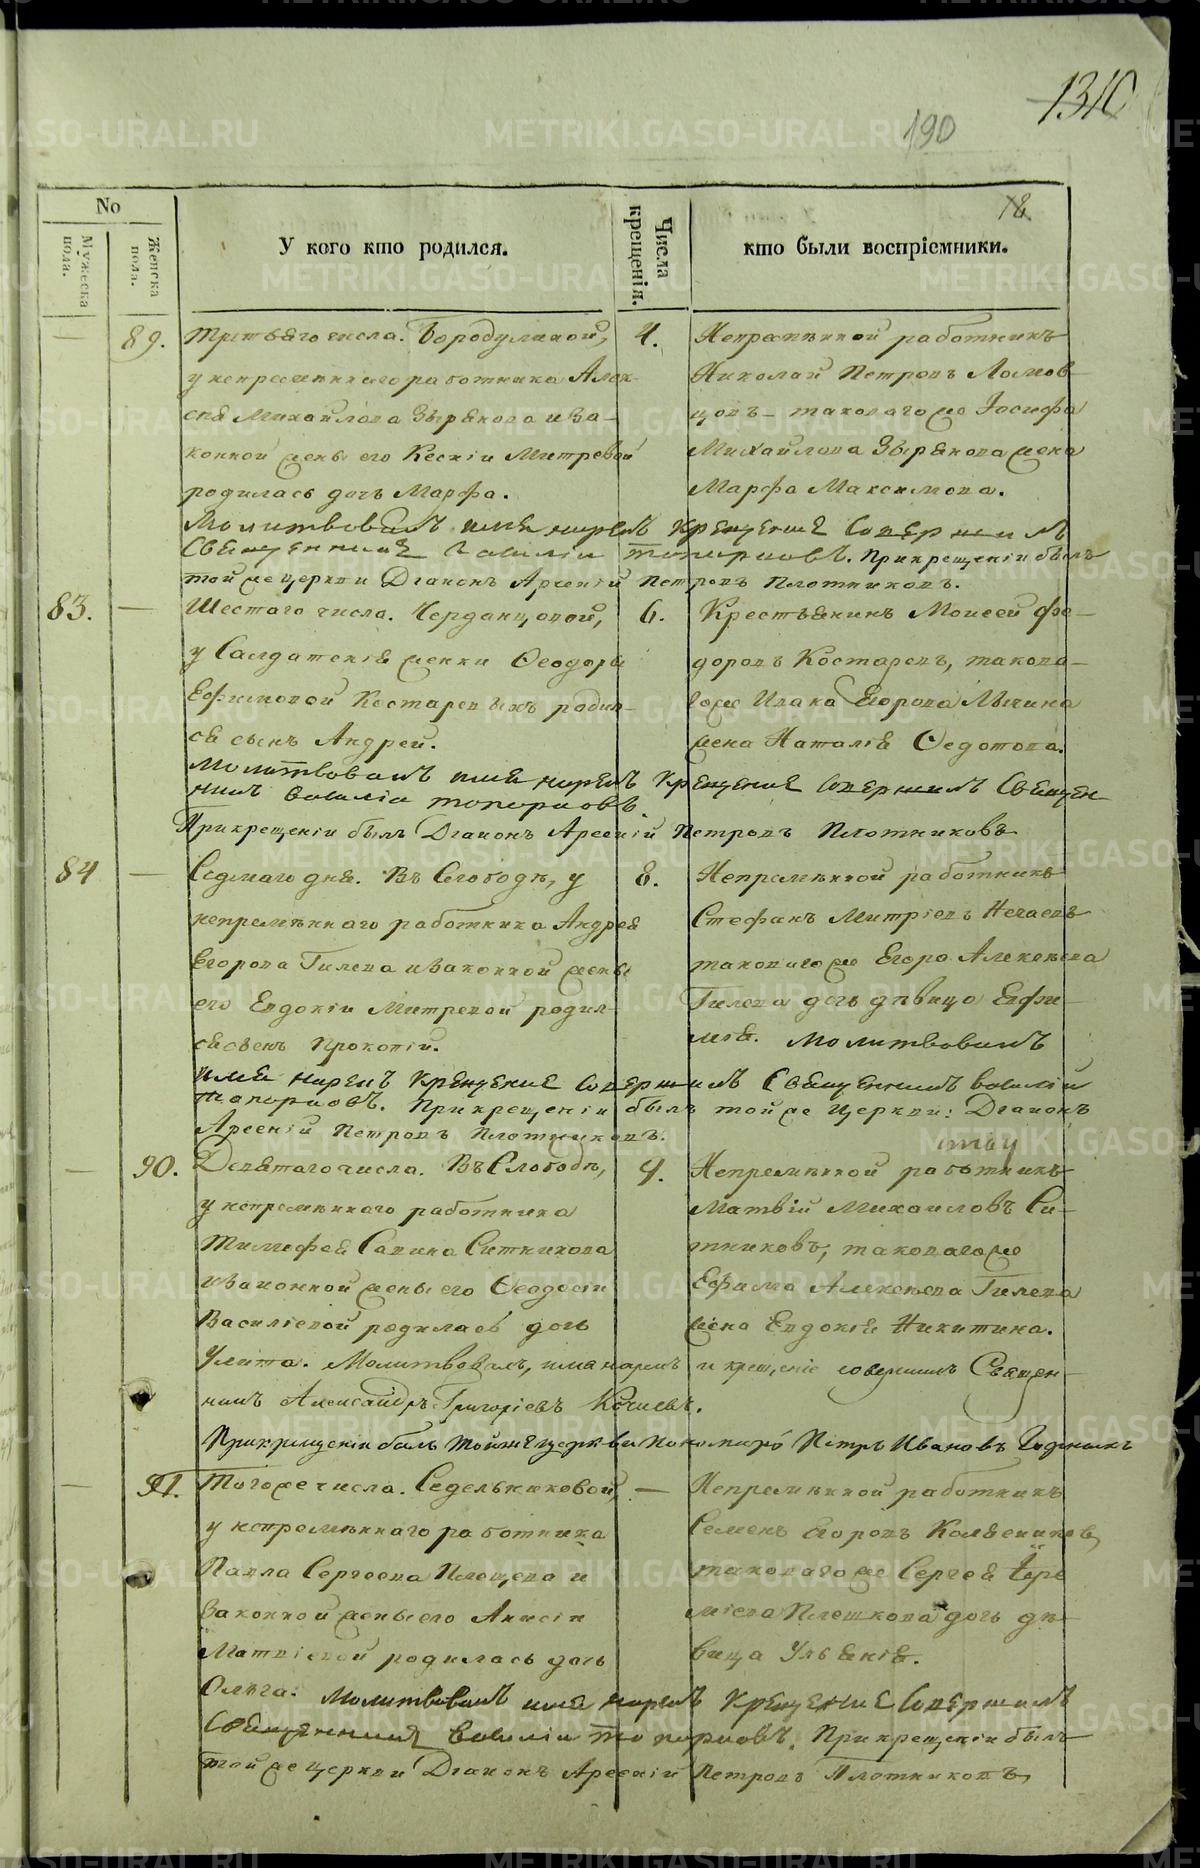 1310
190
18
No
Мужеска пола.
Женска пола.
У кого кто родился.
Числа крещенія.
кто были воспріемники.
89. Третьяго числа. Бородулиной,
у непремѣннаго работника Алек-
сѣя Михайлова Зырянова и за-
конной жены его Ксеніи Митревой
родилась дочь Марфа.
4.
Непремѣнной работникъ
Николай Петровъ Ломов-
цовъ – таковагожъ Іосифа
Михайлова Зырянова жена
Марфа Максимова.
Молитвовалъ имя нарекъ крещеніе совершилъ
Священникъ Василій Топорковъ. При крещеніи былъ
той же церкви Діаконъ Арсеній Петровъ Плотниковъ.
83. Шестаго числа. Черданцовой,
у Салдатскія женки Ѳеодоры
Ефимовой Костаревыхъ родил-
ся сынъ Андрей.
6.
Крестьянинъ Моисей Фе-
доровъ Костаревъ, такова-
гоже Ивана Егорова Мычина
жена Наталія Ѳедотова.
Молитвовалъ имя нарекъ крещеніе совершилъ Священ-
никъ Василій Топорковъ.
При крещеніи былъ Діаконъ Арсеній Петровъ Плотниковъ
84 Седмаго дня. Въ Слободѣ, у
непремѣннаго работника Андрея
Егорова Гилева и законной жены
его Евдокіи Митревой родил-
ся сынъ Прокопій.
8.
Непремѣнной работникъ
Стефанъ Митріевъ Нечаевъ
таковагоже Егора Алексѣева
Гилева дочь дѣвица Евфи-
мія. Молитвовалъ
имя нарекъ крещеніе совершилъ Священникъ Василій
Топорковъ. При крещеніи былъ той же церкви: Діаконъ
Арсеній Петровъ Плотниковъ.
90. Девятаго числа. Въ Слободѣ,
у непремѣннаго работника
Тимофея Савина Ситникова
и законной жены его Ѳеодосіи
Василіевой родилась дочь
Улита. Молитвовалъ, имя нарекъ и крещеніе совершилъ Священ-
никъ Александръ Григоріевъ
9.
Непремѣнной работникъ
Матвій Михаиловъ Си-
тниковъ, таковагоже
Ефима Алексѣева Гилева
жена Евдокія Никитина.
При крещеніи былъ тойже церкви пономарь Петръ Ивановъ
91. Тогоже числа. Седельниковой,
у непремѣннаго работника
Павла Сергеева Плещева и
законной жены его Анисіи
Матвіевой родилась дочь
Ольга.
Непремѣнной работникъ
Семенъ Егоровъ
таковагоже Сергея Ере-
міева Плешкова дочь дѣ-
вица Ульянія.
Молитвовалъ имя нарекъ крещеніе совершилъ
Священникъ Василій Топорковъ. При крещеніи былъ
той же церкви Діаконъ Арсеній Петровъ Плотниковъ